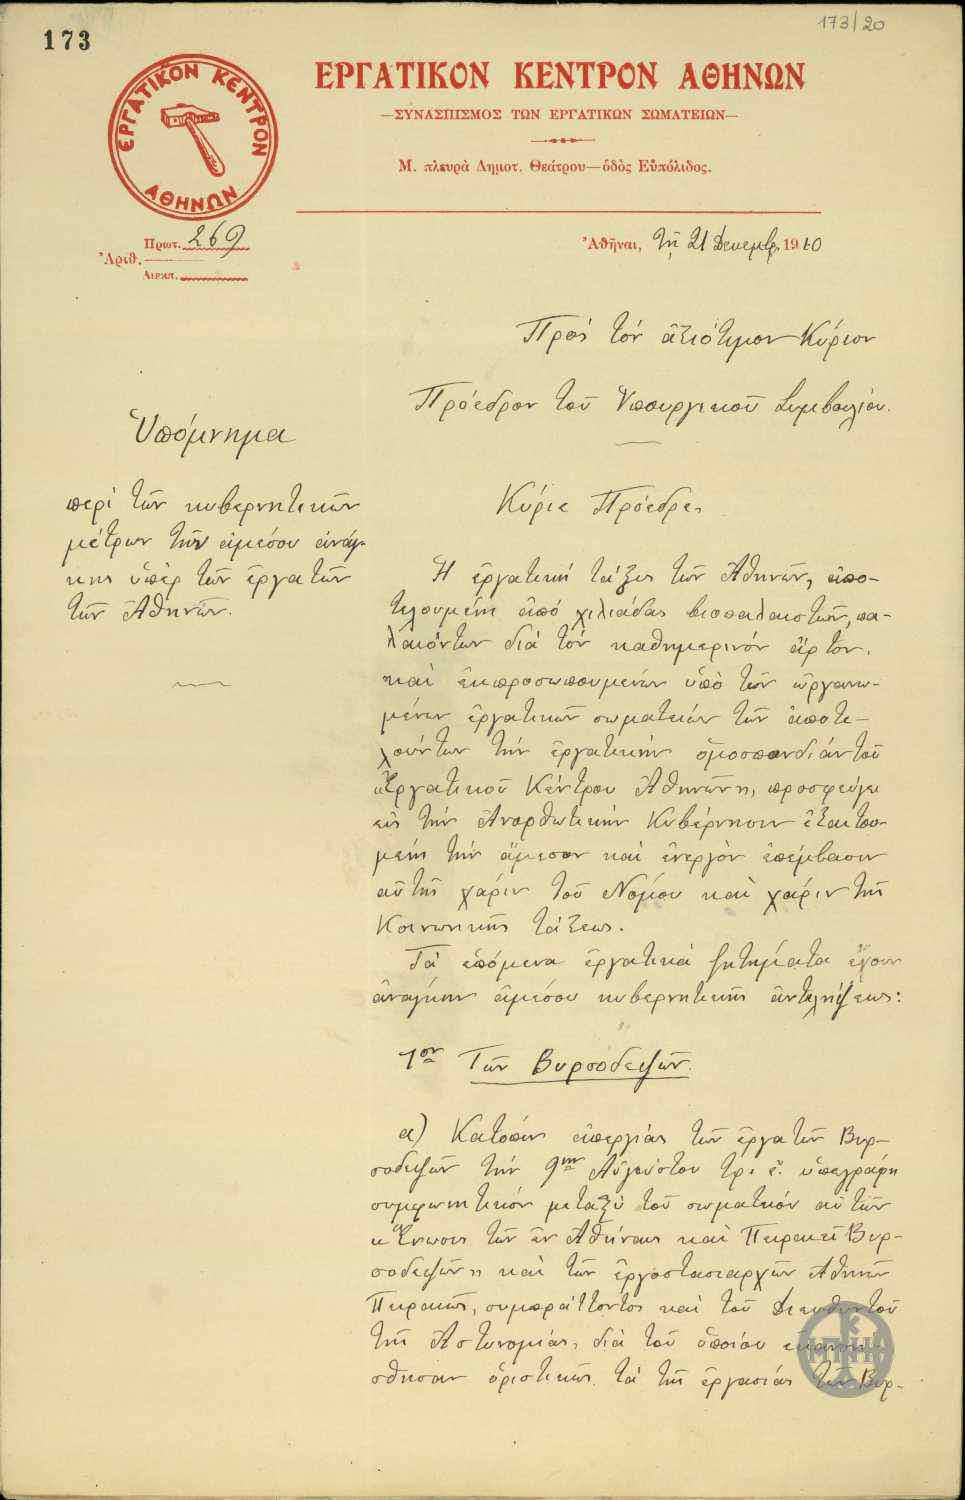 173
173/20
ΕΡΓΑΤΙΚΟΝ ΚΕΝΤΡΟΝ
ΑΘΗΝΩΝ
ΕΡΓΑΤΙΚΟΝ ΚΕΝΤΡΟΝ ΑΘΗΝΩΝ
—ΣΥΝΑΣΠΙΣΜΟΣ ΤΩΝ ΕΡΓΑΤΙΚΩΝ ΣΩΜΑΤΕΙΩΝ—
Μ. πλευρὰ Δημοτ. Θεάτρου—ὁδὸς Εὐπόλιδος.
Πρωτ. 269
Ἀριθ.
Διεκπ.
Ἀθῆναι, τῇ 21 Δεκεμβρ. 1910
Πρὸς τὸν ἀξιότιμον Κύριον
Πρόεδρον τοῦ Ὑπουργικοῦ Συμβουλίου.
Ὑπόμνημα
περὶ τῶν κυβερνητικῶν
μέτρων τῶν ἀμέσου ἀνάγ-
κης ὑπὲρ τῶν ἐργατῶν
τῶν Ἀθηνῶν.
Κύριε Πρόεδρε,
Ἡ ἐργατικὴ τάξις τῶν Ἀθηνῶν, ἀπο-
τελουμένη ἀπὸ χιλιάδας βιοπαλαιστῶν, πα-
λαιόντων διὰ τὸν καθημερινὸν ἄρτον,
καὶ ἐκπροσωπουμένων ὑπὸ τῶν ὠργανω-
μένων ἐργατικῶν σωματείων τῶν ἀποτε-
λούντων τὴν ἐργατικὴν ὁμοσπονδίαν τοῦ
«Ἐργατικοῦ Κέντρου Ἀθηνῶν», προσφεύγει
εἰς τὴν Ἀνορθωτικὴν Κυβέρνησιν ἐξαιτου-
μένη τὴν ἄμεσον καὶ ἐνεργὸν ἐπέμβασιν
αὐτῆς χάριν τοῦ Νομίου καὶ χάριν τῆς
Κοινωνικῆς τάξεως.
Τὰ ἑπόμενα ἐργατικὰ ζητήματα ἔχουν
ἀνάγκην ἀμέσου κυβερνητικῆς ἀντιλήψεως:
1ον Τῶν Βυρσοδεψῶν.
α) Κατόπιν ἀπεργίας τῶν ἐργατῶν Βυρ-
σοδεψῶν τὴν 9ην Αὐγούστου τρ. ἔ. ὑπεγράφη
συμφωνητικὸν μεταξὺ τοῦ σωματείου αὐτῶν
«Ἕνωσις τῶν ἐν Ἀθήναις καὶ Πειραιεῖ Βυρ-
σοδεψῶν» καὶ τῶν ἐργοστασιαρχῶν Ἀθηνῶν
Πειραιῶς, συμπράττοντος καὶ τοῦ Διευθυντοῦ
τῆς Ἀστυνομίας, διὰ τοῦ ὁποίου ἐκανονί-
σθησαν ὁριστικῶς τὰ τῆς ἐργασίας τῶν Βυρ-